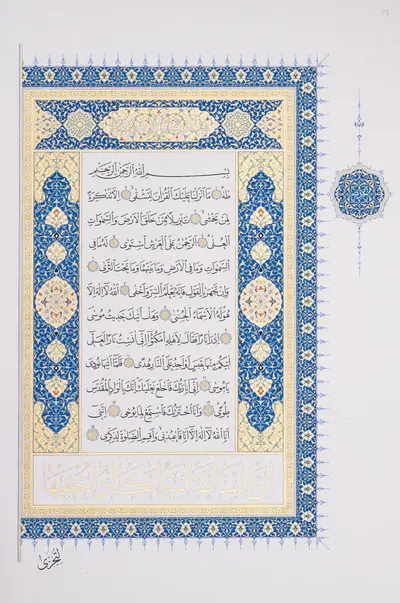 بِسْمِ اللهِ الرَّحْمٰنِ الرَّحِيمِ
طه ۝ مَا أَنْزَلْنَا عَلَيْكَ الْقُرْآنَ لِتَشْقٰى ۝ إِلَّا تَذْكِرَةً
لِمَنْ يَخْشٰى ۝ تَنْزِيلًا مِمَّنْ خَلَقَ الْأَرْضَ وَالسَّمٰوَاتِ
الْعُلٰى ۝ الرَّحْمٰنُ عَلَى الْعَرْشِ اسْتَوٰى ۝ لَهُ مَا فِي
السَّمٰوَاتِ وَمَا فِي الْأَرْضِ وَمَا بَيْنَهُمَا وَمَا تَحْتَ الثَّرٰى ۝
وَإِنْ تَجْهَرْ بِالْقَوْلِ فَإِنَّهُ يَعْلَمُ السِّرَّ وَأَخْفٰى ۝ اللهُ لَا إِلٰهَ إِلَّا
هُوَ لَهُ الْأَسْمَاءُ الْحُسْنٰى ۝ وَهَلْ أَتٰيكَ حَدِيثُ مُوسٰى
۝ إِذْ رَأٰى نَارًا فَقَالَ لِأَهْلِهِ امْكُثُوا إِنِّي آنَسْتُ نَارًا لَعَلِّي
آتِيكُمْ مِنْهَا بِقَبَسٍ أَوْ أَجِدُ عَلَى النَّارِ هُدًى ۝ فَلَمَّا أَتٰيهَا نُودِيَ
يَا مُوسٰى ۝ إِنِّي أَنَا رَبُّكَ فَاخْلَعْ نَعْلَيْكَ إِنَّكَ بِالْوَادِ الْمُقَدَّسِ
طُوًى ۝ وَأَنَا اخْتَرْتُكَ فَاسْتَمِعْ لِمَا يُوحٰى ۝ إِنَّنِي
أَنَا اللهُ لَا إِلٰهَ إِلَّا أَنَا فَاعْبُدْنِي وَأَقِمِ الصَّلٰوةَ لِذِكْرِي ۝
إِنَّ السَّاعَةَ آتِيَةٌ أَكَادُ أُخْفِيهَا
لِتُجْزٰى